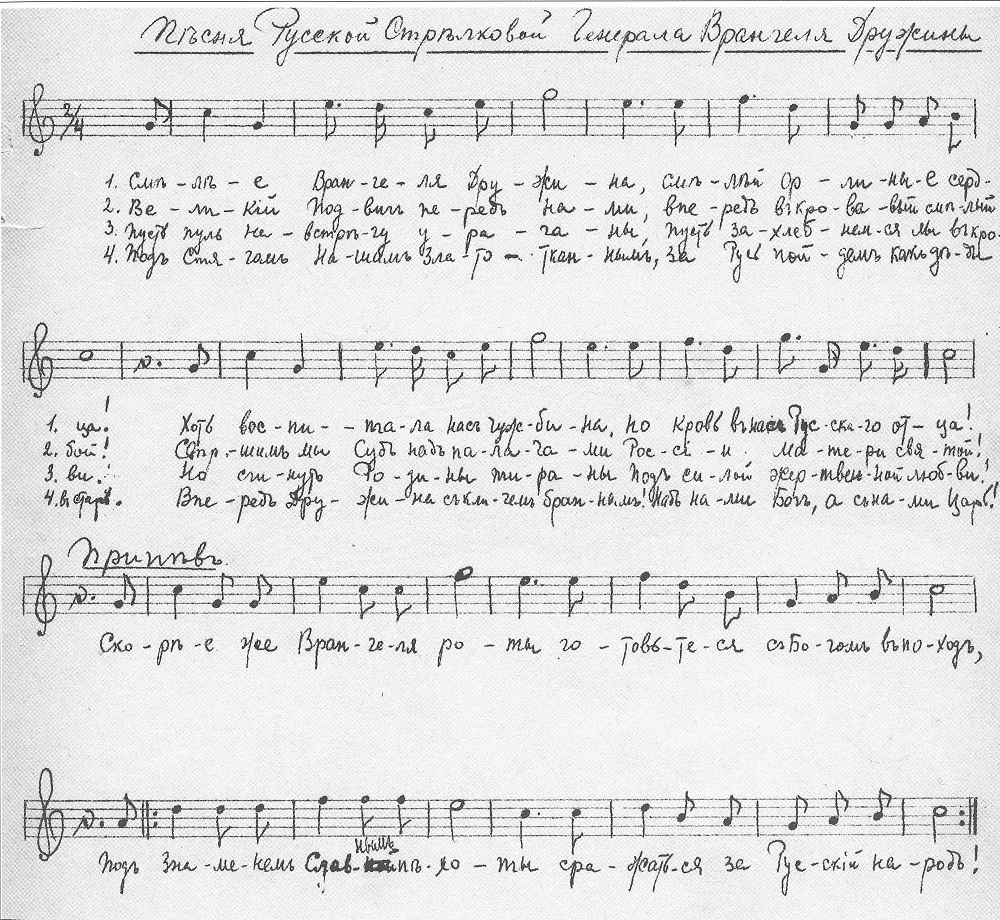 Пѣсня Русской Стрѣлковой Генерала Врангеля Дружины
2/4
1. Смѣ-лѣ-е Вран-ге-ля Дру-жи-на, смѣ-лѣй ор-ли-ны-е серд-
2. Ве-ли-кій под-вигъ пе-редъ на-ми, впе-редъ въ кро-ва-вый смѣ-лый
3. Пусть пуль на-встрѣ-чу у-ра-га-ны, пусть за-хлеб-нем-ся мы въ кро-
4. Подъ стя-гомъ на-шимъ зла-то-ткан-нымъ, за Русь пой-демъ какъ дѣ-ды
1. ца! Хоть вос-пи-та-ла насъ чуж-би-на, но кровь въ насъ Рус-ска-го от-ца!
2. бой! мы Судъ надъ па-ла-ча-ми Рос-сі-и ма-те-ри свя-той!
3. ви! Но сги-нутъ Ро-ди-ны ти-ра-ны подъ си-лой жер-твен-ной люб-ви!
4. въ старь. Впе-редъ Дру-жи-на съ кли-чемъ бран-нымъ! Надъ на-ми Богъ, а съ на-ми Царь!
Припѣвъ.
Ско-рѣ-е же Вран-ге-ля ро-ты го-товь-те-ся съ Бо-гомъ въ по-ходъ,
Подъ зна-ме-немъ Слав-нымъ пѣ-хо-ты сра-жать-ся за Рус-скій на-родъ!